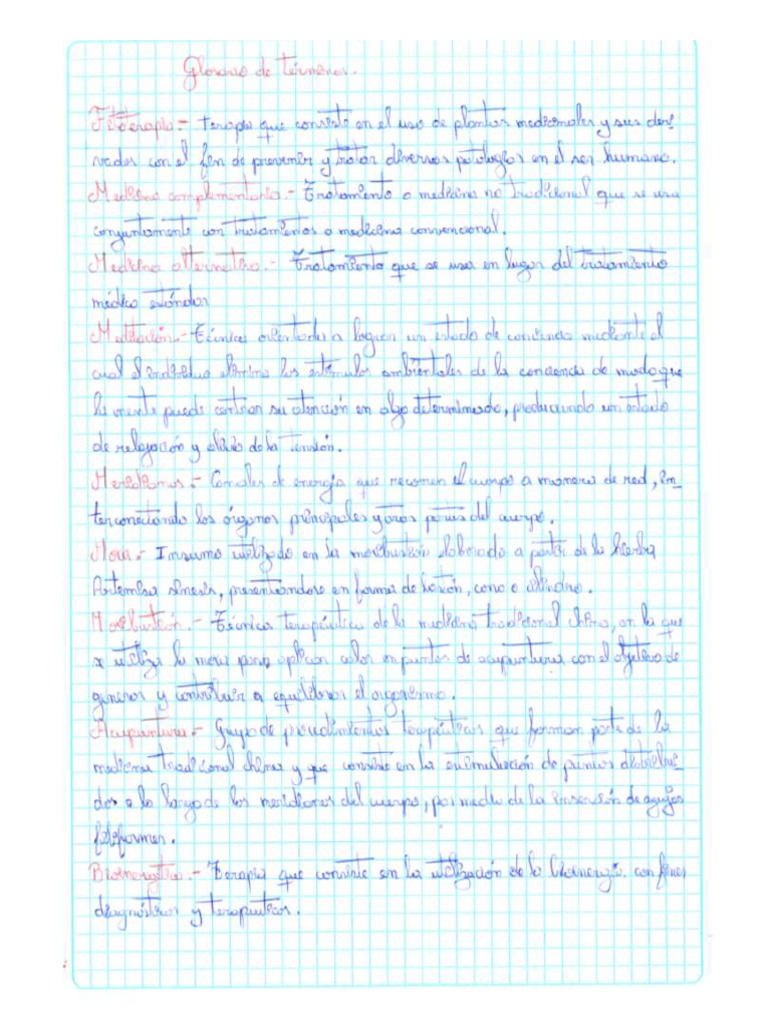 Glosario de términos.
Fitoterapia.- Terapia que consiste en el uso de plantas medicinales y sus deri
vados con el fin de prevenir y tratar diversas patologías en el ser humano.
Medicina complementaria.- Tratamiento o medicina no tradicional que se usa
conjuntamente con tratamientos o medicina convencional.
Medicina alternativa.- Tratamiento que se usa en lugar del tratamiento
médico estándar
Meditación.- Técnica orientada a lograr un estado de conciencia mediante el
cual el individuo elimina los estímulos ambientales de la conciencia de modo que
la mente puede centrar su atención en algo determinado, produciendo un estado
de relajación y alivio de la tensión.
Meridianos.- Canales de energía que recorren el cuerpo a manera de red, in_
terconectando los órganos principales y otras partes del cuerpo.
Moxa.- Insumo utilizado en la moxibustión elaborado a partir de la hierba
Artemisa sinesis, presentándose en forma de botón, cono o cilindro.
Moxibustión.- Técnica terapéutica de la medicina tradicional china, en la que
se utiliza la moxa para aplicar calor en puntos de acupuntura con el objetivo de
generar y contribuir a equilibrar el organismo.
Acupuntura.- Grupo de procedimientos terapéuticos que forman parte de la
medicina tradicional china y que consiste en la estimulación de puntos distribui
dos a lo largo de los meridianos del cuerpo, por medio de la inserción de agujas
filiformes.
Bioenergética.- Terapia que consiste en la utilización de la bioenergía. con fines
diagnósticos y terapeuticos.